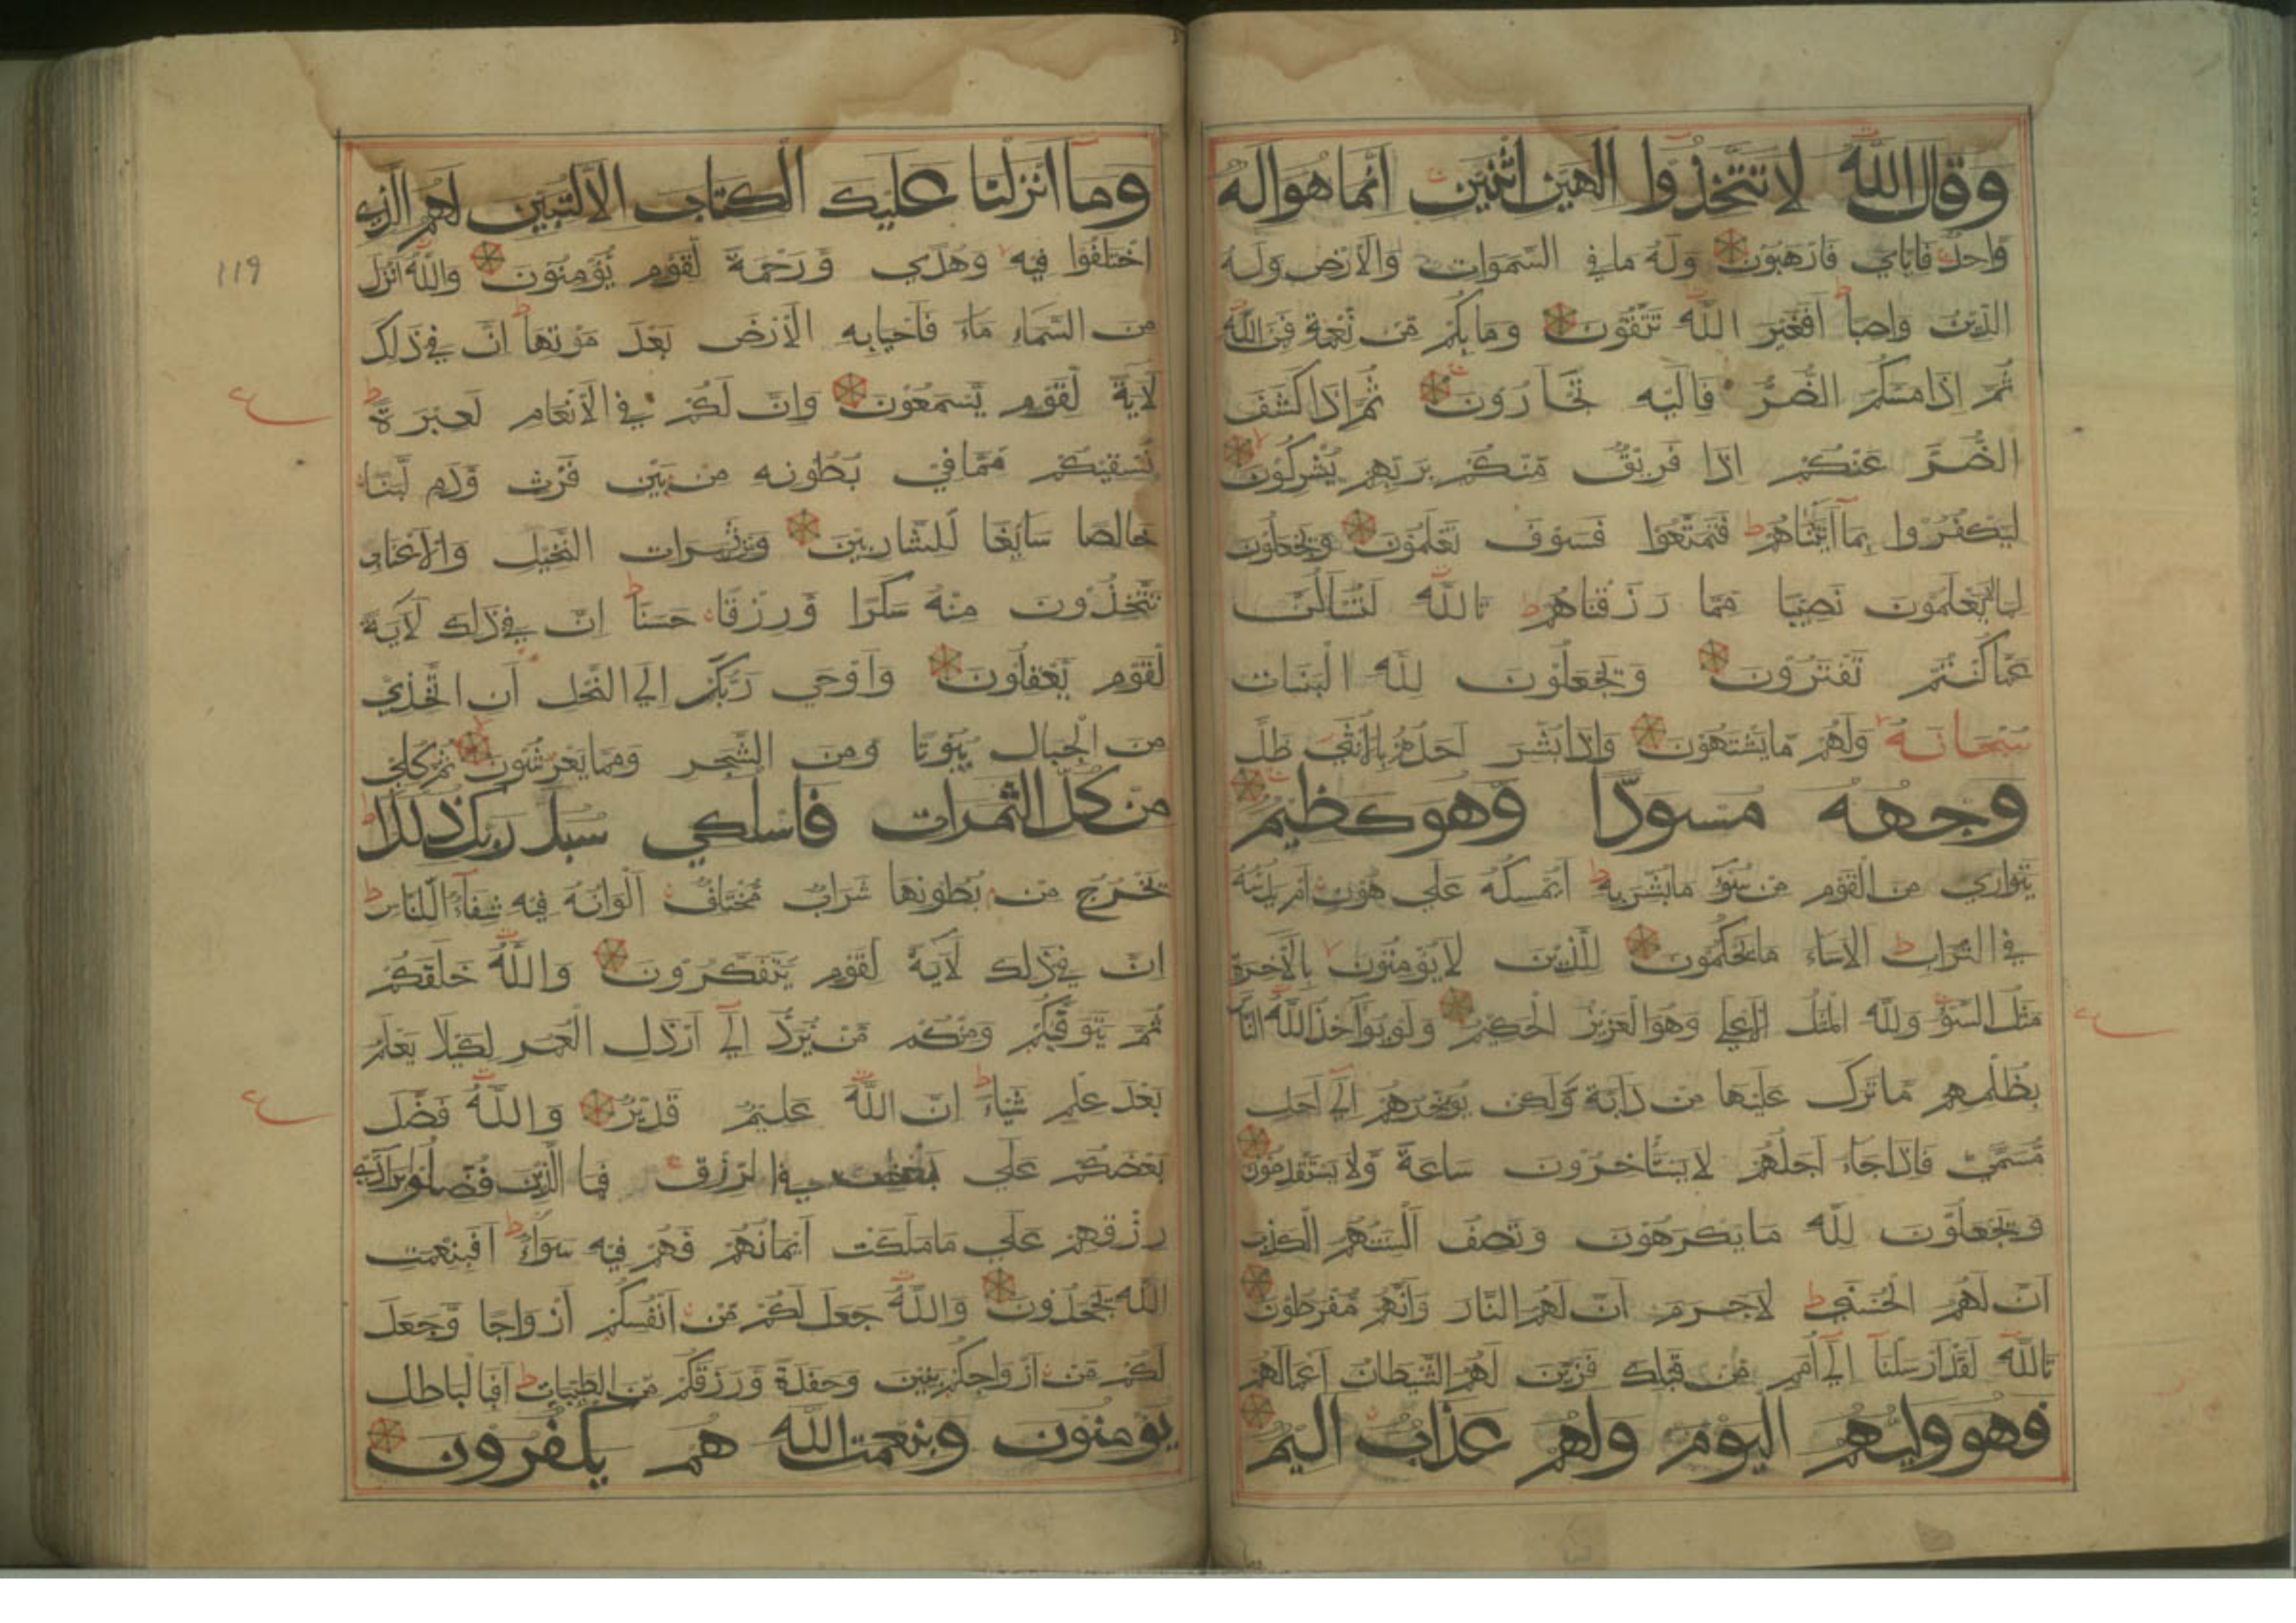 وقال الله لا تتخذوا الهين اثنين انما هو اله
واحد فاياي فارهبون وله ما في السموات والارض وله
الدين واصبا افغير الله تتقون وما بكم من نعمة فمن الله
ثم اذا مسكم الضر فاليه تجارون ثم اذا كشف
الضر عنكم اذا فريق منكم بربهم يشركون
ليكفروا بما اتيناهم فتمتعوا فسوف تعلمون ويجعلون
لما لا يعلمون نصيبا مما رزقناهم تالله لتسالن
عما كنتم تفترون ويجعلون لله البنات
سبحانه ولهم ما يشتهون واذا بشر احدهم بالانثي ظل
وجهه مسودا وهو كظيم
يتواري من القوم من سوء ما بشر به ايمسكه علي هون ام يدسه
في التراب الا ساء ما يحكمون للذين لا يؤمنون بالاخرة
مثل السوء ولله المثل الاعلي وهو العزيز الحكيم ولو يؤاخذ الله الناس
بظلمهم ما ترك عليها من دابة ولكن يؤخرهم الي اجل
مسمي فاذا جاء اجلهم لا يستاخرون ساعة ولا يستقدمون
ويجعلون لله ما يكرهون وتصف السنتهم الكذب
ان لهم الحسني لا جرم ان لهم النار وانهم مفرطون
تالله لقد ارسلنا الي امم من قبلك فزين لهم الشيطان اعمالهم
فهو وليهم اليوم ولهم عذاب اليم
وما انزلنا عليك الكتاب الا لتبين لهم الذي
اختلفوا فيه وهدي ورحمة لقوم يؤمنون والله انزل
من السماء ماء فاحيا به الارض بعد موتها ان في ذلك
لاية لقوم يسمعون وان لكم في الانعام لعبرة
نسقيكم مما في بطونه من بين فرث ودم لبنا
خالصا سائغا للشاربين ومن ثمرات النخيل والاعناب
تتخذون منه سكرا ورزقا حسنا ان في ذلك لاية
لقوم يعقلون واوحي ربك الي النحل ان اتخذي
من الجبال بيوتا ومن الشجر ومما يعرشون ثم كلي
من كل الثمرات فاسلكي سبل ربك ذللا
يخرج من بطونها شراب مختلف الوانه فيه شفاء للناس
ان في ذلك لاية لقوم يتفكرون والله خلقكم
ثم يتوفيكم ومنكم من يرد الي ارذل العمر لكيلا يعلم
بعد علم شيئا ان الله عليم قدير والله فضل
بعضكم علي بعض في الرزق فما الذين فضلوا برادي
رزقهم علي ما ملكت ايمانهم فهم فيه سواء افبنعمت
الله يجحدون والله جعل لكم من انفسكم ازواجا وجعل
لكم من ازواجكم بنين وحفدة ورزقكم من الطيبات افبالباطل
يؤمنون وبنعمت الله هم يكفرون
119
ع
ع
ع